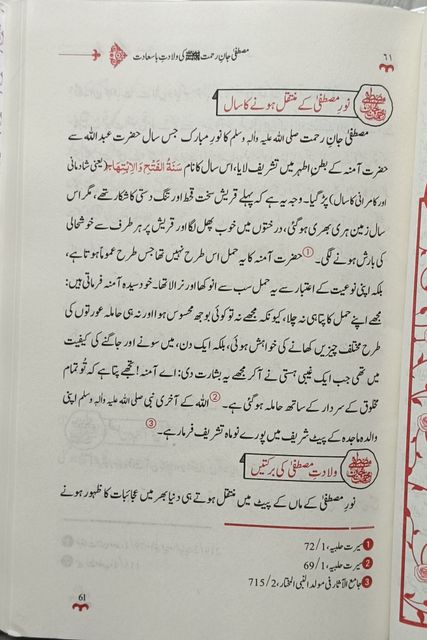 ۶۱
مصطفیٰ جانِ رحمت ﷺ کی ولادتِ باسعادت
نورِ مصطفیٰ کے منتقل ہونے کا سال
مصطفیٰ جانِ رحمت صلی اللہ علیہ والہٖ وسلم کا نورِ مبارک جس سال حضرت عبداللہ سے
حضرت آمنہ کے بطنِ اطہر میں تشریف لایا، اس سال کا نام سَنَۃُ الْفَتْحِ وَالْاِبْتِهَاجِ (یعنی شادمانی
اور کامرانی کا سال) پڑ گیا۔ وجہ یہ ہے کہ پہلے قریش سخت قحط اور تنگ دستی کا شکار تھے، مگر اس
سال زمین ہری بھری ہو گئی، درختوں میں خوب پھل لگا اور قریش پر ہر طرف سے خوشحالی
کی بارش ہونے لگی۔ ① حضرت آمنہ کا یہ حمل اس طرح نہیں تھا جس طرح عموماً ہوتا ہے،
بلکہ اپنی نوعیت کے اعتبار سے یہ حمل سب سے انوکھا اور نرالا تھا۔ خود سیدہ آمنہ فرماتی ہیں:
مجھے اپنے حمل کا پتا ہی نہ چلا، کیونکہ مجھے نہ تو کوئی بوجھ محسوس ہوا اور نہ ہی حاملہ عورتوں کی
طرح مختلف چیزیں کھانے کی خواہش ہوئی، بلکہ ایک دن، میں سونے اور جاگنے کی کیفیت
میں تھی جب ایک غیبی ہستی نے آ کر مجھے یہ بشارت دی: اے آمنہ! تجھے پتا ہے کہ تُو تمام
مخلوق کے سردار کے ساتھ حاملہ ہو گئی ہے۔ ② اللہ کے آخری نبی صلی اللہ علیہ والہٖ وسلم اپنی
والدہ ماجدہ کے پیٹ شریف میں پورے نو ماہ تشریف فرما رہے۔ ③
ولادتِ مصطفیٰ کی برکتیں
نورِ مصطفیٰ کے ماں کے پیٹ میں منتقل ہوتے ہی دنیا بھر میں عجائبات کا ظہور ہونے
❶ سیرت حلبیہ، 1/72
❷ سیرت حلبیہ، 1/69
❸ جامع الآثار فی مولد النبی المختار، 2/715
61